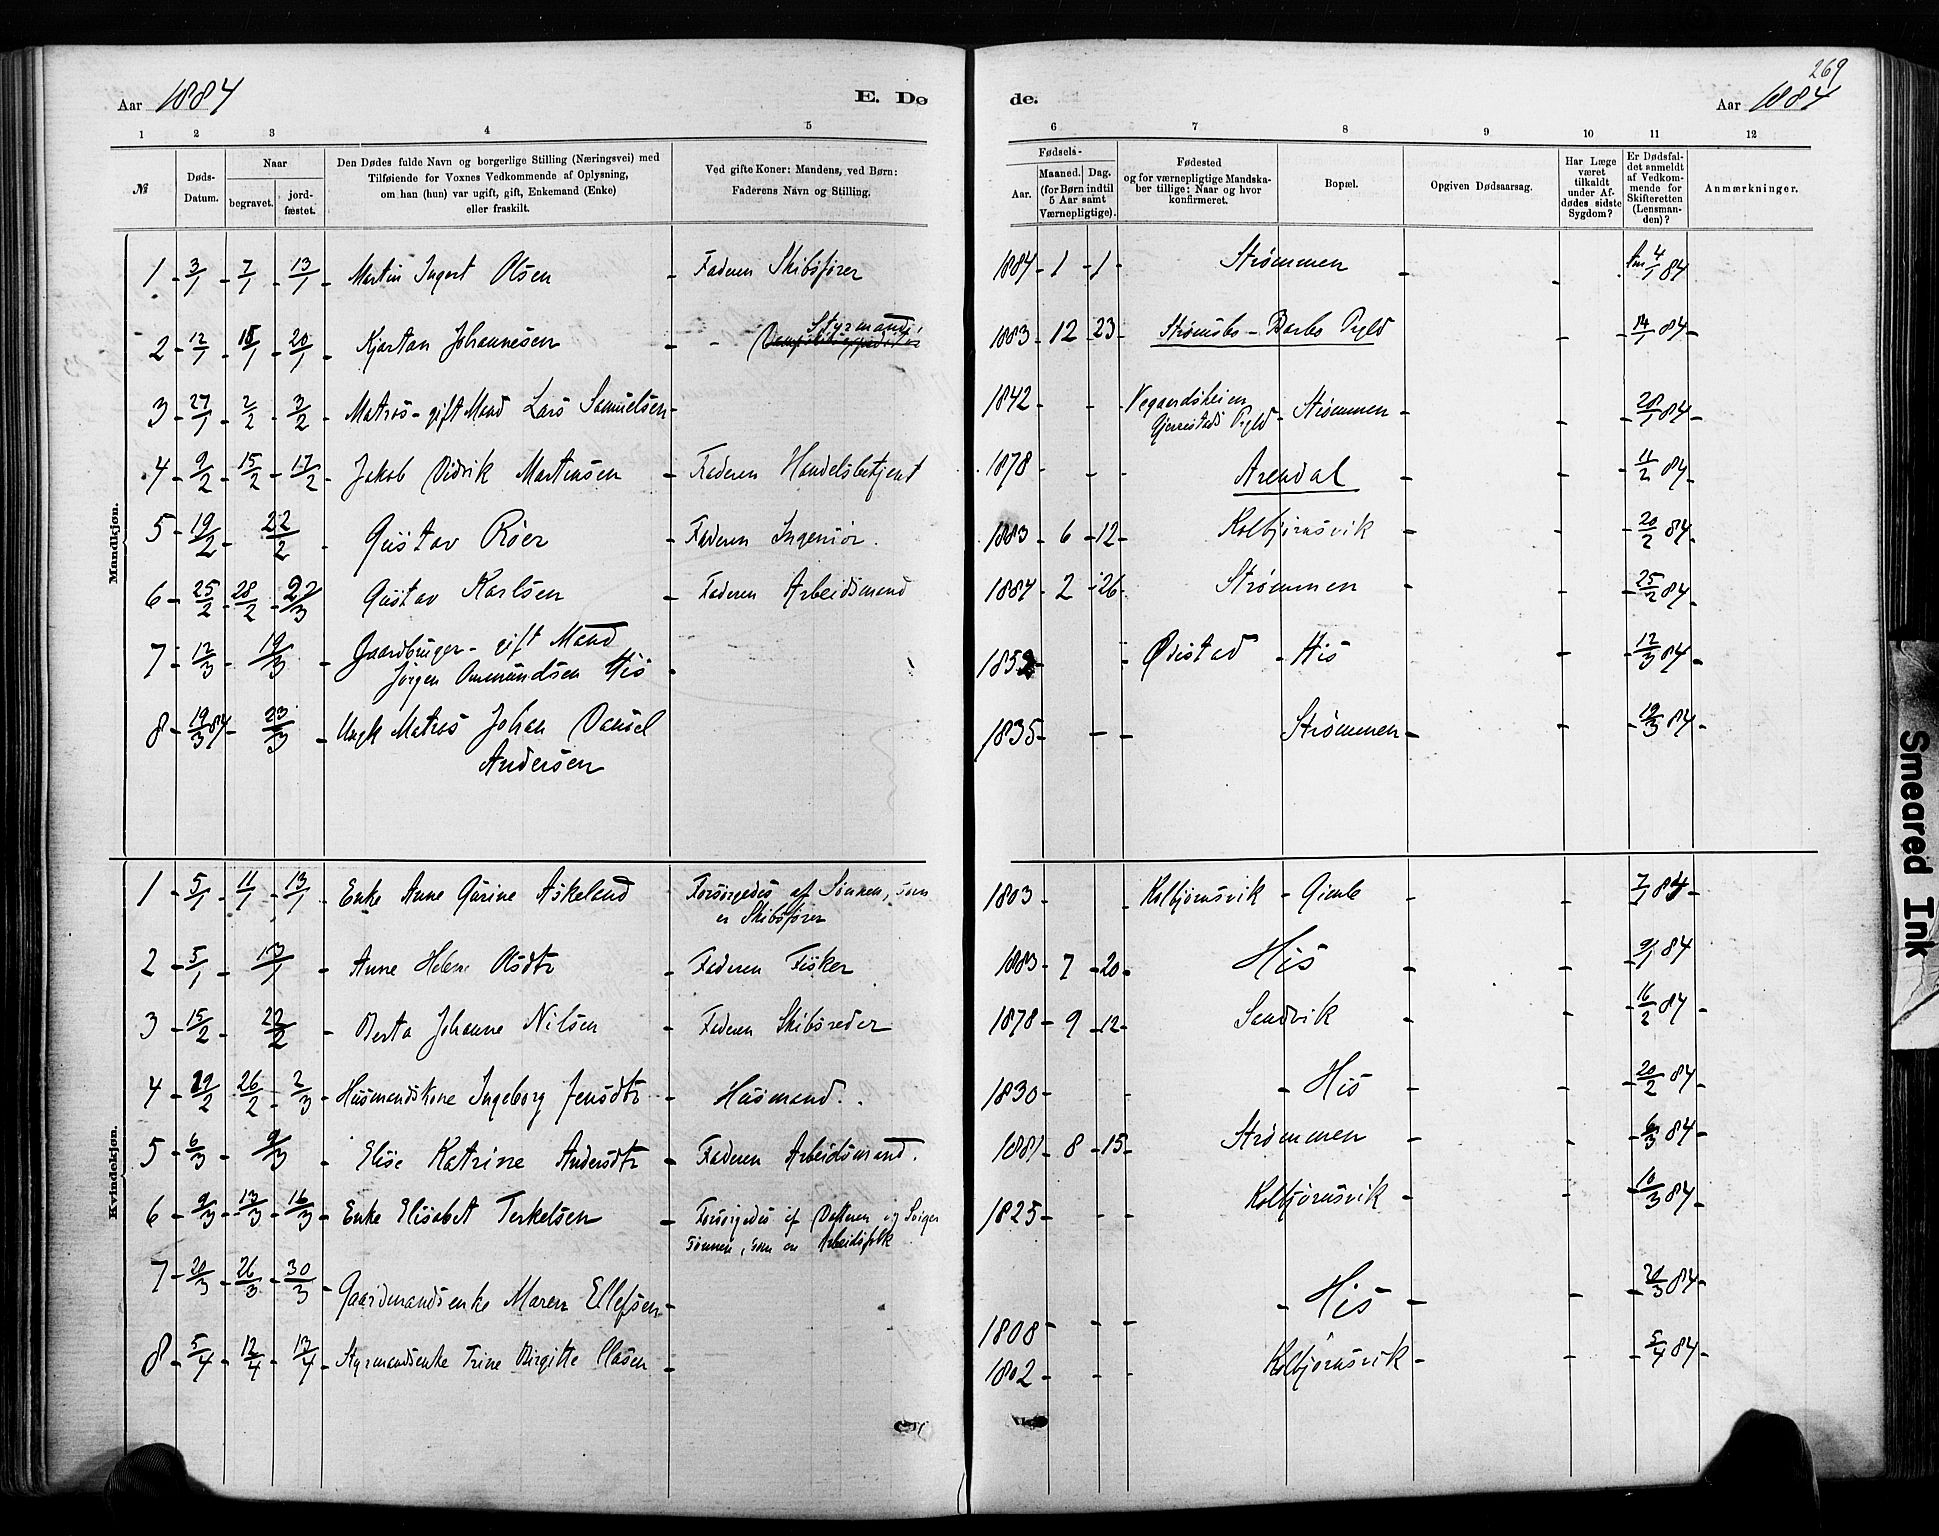 Aar 1884
E. Dø
de.
269
Aar 1884
1 2 3 4 5 6 7 8 9 10 11 12
№
Døds-Datum.
Naar
begravet.
jord-fæstet.
Den Dødes fulde Navn og borgerlige Stilling (Næringsvei) med
Tilføiende for Voxnes Vedkommende af Oplysning,
om han (hun) var ugift, gift, Enkemand (Enke)
eller fraskilt.
Ved gifte Koner: Mandens, ved Børn:
Faderens Navn og Stilling.
Fødsels-
Aar.
Maaned. Dag.
(for Børn indtil
5 Aar samt
Værnepligtige).
Fødested
og for værnepligtige Mandska-
ber tillige: Naar og hvor
konfirmeret.
Bopæl.
Opgiven Dødsaarsag.
Har Læge
været
tilkaldt
under Af-
dødes sidste
Sygdom?
Er Dødsfal-
det anmeldt
af Vedkom-
mende for
Skifteretten
(Lensman-
den)?
Anmærkninger.
Mandkjøn.
1 3/1 7/1 13/1 Martin Ingort Olsen Faderen Skibsfører 1884 1 1 Strømmen 4/1 84
2 12/1 18/1 20/1 Kjartan Johannesen - Styrmand 1883 12 23 Strømsbo - Barbo Pgld 14/1 84
3 27/1 2/2 3/2 Matros - gift Mand Lars Samuelsen 1842 Vegaardsheien
Gjerrestads Pgld Strømmen 28/1 84
4 9/2 15/2 17/2 Jakob Didrik Martinsen Faderen Handelsbetjent 1878 Arendal 11/2 84
5 19/2 22/2 Gustav Röer Faderen Ingeniör. 1883 6 12 Kolbjörnsvik 20/2 84
6 25/2 28/2 /3 Gustav Karlsen Faderen Arbeidsmand 1884 2 26 Strømmen 25/2 84
7 12/3 19/3 Gaardbruger - gift Mand
Jörgen Ommundsen His Øiestad His 12/3 84
8 19/3 84 23/3 Ungk Matros Johan Daniel
Andersen 1835 Strømmen 19/3 84
Kvindekjøn.
1 5/1 11/1 13/1 Enke Anne Gurine Askeland Forsørgedes af Sønnen, som
er Skibsfører 1803 Kolbjörnsvik Gimle 7/1 84
2 5/1 13/1 Anne Helene Olsdtr Faderen Fisker 1883 7 20 His 9/1 84
3 15/2 22/2 Berta Johanne Nilsen Faderen Skibsreder 1878 9 12 Sandvik 16/2 84
4 19/2 26/2 2/3 Husmandskone Ingeborg Jensdtr Husmand. 1830 His 20/2 84
5 6/3 9/3 Elise Katrine Andersdtr Faderen Arbeidsmand. 1881 8 15 Strømmen 6/3 84
6 9/3 13/3 16/3 Enke Elisabet Terkelsen Forsørgedes af Datteren og Sviger
sønnen, som er Arbeidsfolk 1825 Kolbjörnsvik 10/3 84
7 20/3 26/3 30/3 Gaardmandsenke Maren Ellefsen 1808 His 20/3 84
8 5/4 12/4 13/4 Styrmandsenke Trine Birgitte Clasen 1802 Kolbjörnsvik 5/4 84
Smeared Ink